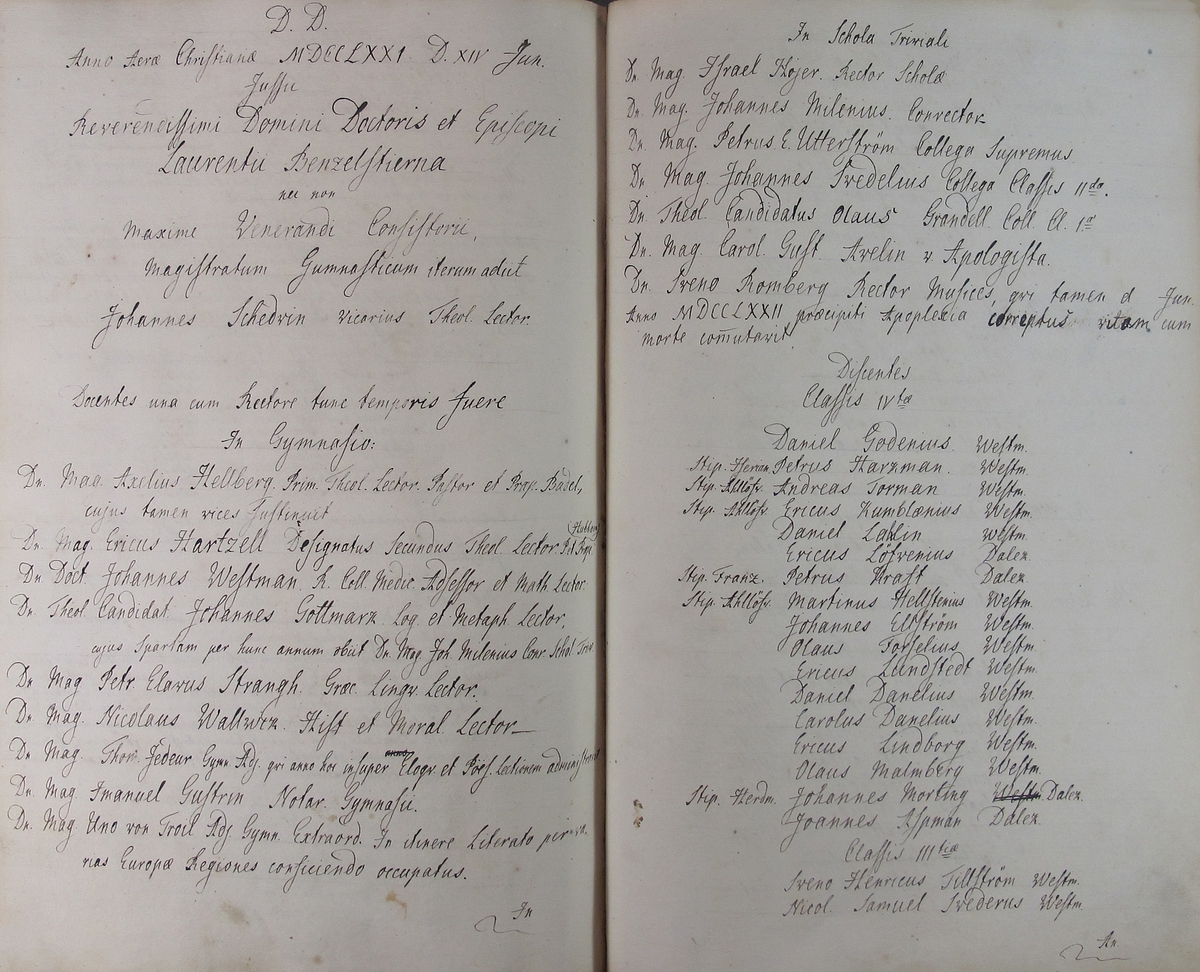 D. D.
Anno Aeræ Christianæ MDCCLXXI D. XIV Jun.
Jussu
Reverendissimi Domini Doctoris et Episcopi
Laurentii Benzelstierna
nec non
maxime Venerandi Consistorii,
Magistratum Gymnasticum iterum adiit
Johannes Schedvin vicarius Theol. Lector.
Docentes una cum Rectore tunc temporis fuere
In Gymnasio:
Dn. Mag. Axelius Hellberg. Prim. Theol. Lector. Pastor et Præp. Badel,
cujus tamen vices sustinuit
Dn. Mag. Ericus Hartzell Designatus Secundus Theol. Lector.
Dn. Doct. Johannes Westman R. Coll. Medic. Adsessor et Math. Lector.
Dn. Theol. Candidat. Johannes Gottmarz Log. et Metaph. Lector,
cujus Spartam per hunc annum obiit Dn. Mag. Joh. Milenius Conr. Schol. Triv
Dn. Mag Petr. Elavus Strangh. Græc. Lingv. Lector.
Dn. Mag. Nicolaus Wallwik. Hist et Moral Lector
Dn. Mag. Thom. Fedeur Gymn Adj. qvi anno hoc insuper Eloqv. et Poës. Lectionem administravit
Dn. Mag Imanuel Gustrin Notar. Gymnasii.
Dn. Mag Uno von Troil Adj Gymn. Extraord. In itinere Literato per va-
rias Europæ Regiones conficiendo occupatus.
In
In Schola Triviali
Dn. Mag. Israel Hojer. Rector Scholæ
Dn. Mag. Johannes Milenius. Conrector
Dn. Mag. Petrus E. Utterström Collega Supremus
Dn. Mag. Johannes Svedelius Collega Classis IIdæ.
Dn. Theol. Candidatus Olaus Grandell. Coll. Cl. 1æ
Dn. Mag. Carol. Gust. Avelin v. Apologista.
Dn. Sveno Romberg Rector Musices, qvi tamen d Jun.
Anno MDCCLXXII præcipiti Apoplexia correptus vitam cum
morte com̄utavit
Discentes
Classis IVtæ
Daniel Godenius Westm.
Stip. Herran Petrus Harzman. Westm.
Stip. Ahllöfv Andreas Torman Westm.
Stip. Ahllöfv Ericus Humblænius Westm.
Daniel Lahlin Westm.
Ericus Löfvenius Dalek
Stip. Franz. Petrus Kraft Dalek
Stip. Ahllöfv. Martinus Hellstenius Westm.
Johannes Ellström Westm.
Olaus Torselius Westm.
Ericus Lundstedt Westm.
Daniel Danelius Westm.
Carolus Danelius Westm.
Ericus Lindborg Westm.
Olaus Malmberg Westm.
Stip. Herdm. Johannes Morting Westm Dalek.
Joannes Aspman Dalek
Classis IIItiæ
Sveno Henricus Tillström Westm.
Nicol. Samuel Svederus Westm.
An